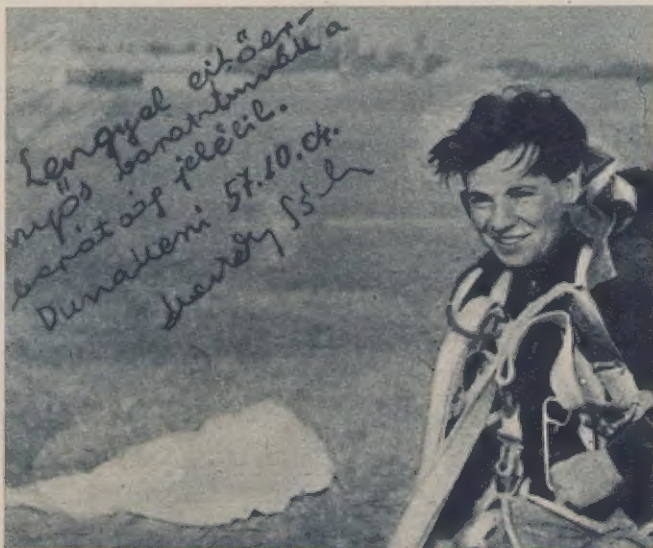 Lengyel ejtőer-
nyős barátaimnak a
barátság jeléül.
Dunakeszi 57.10.04.